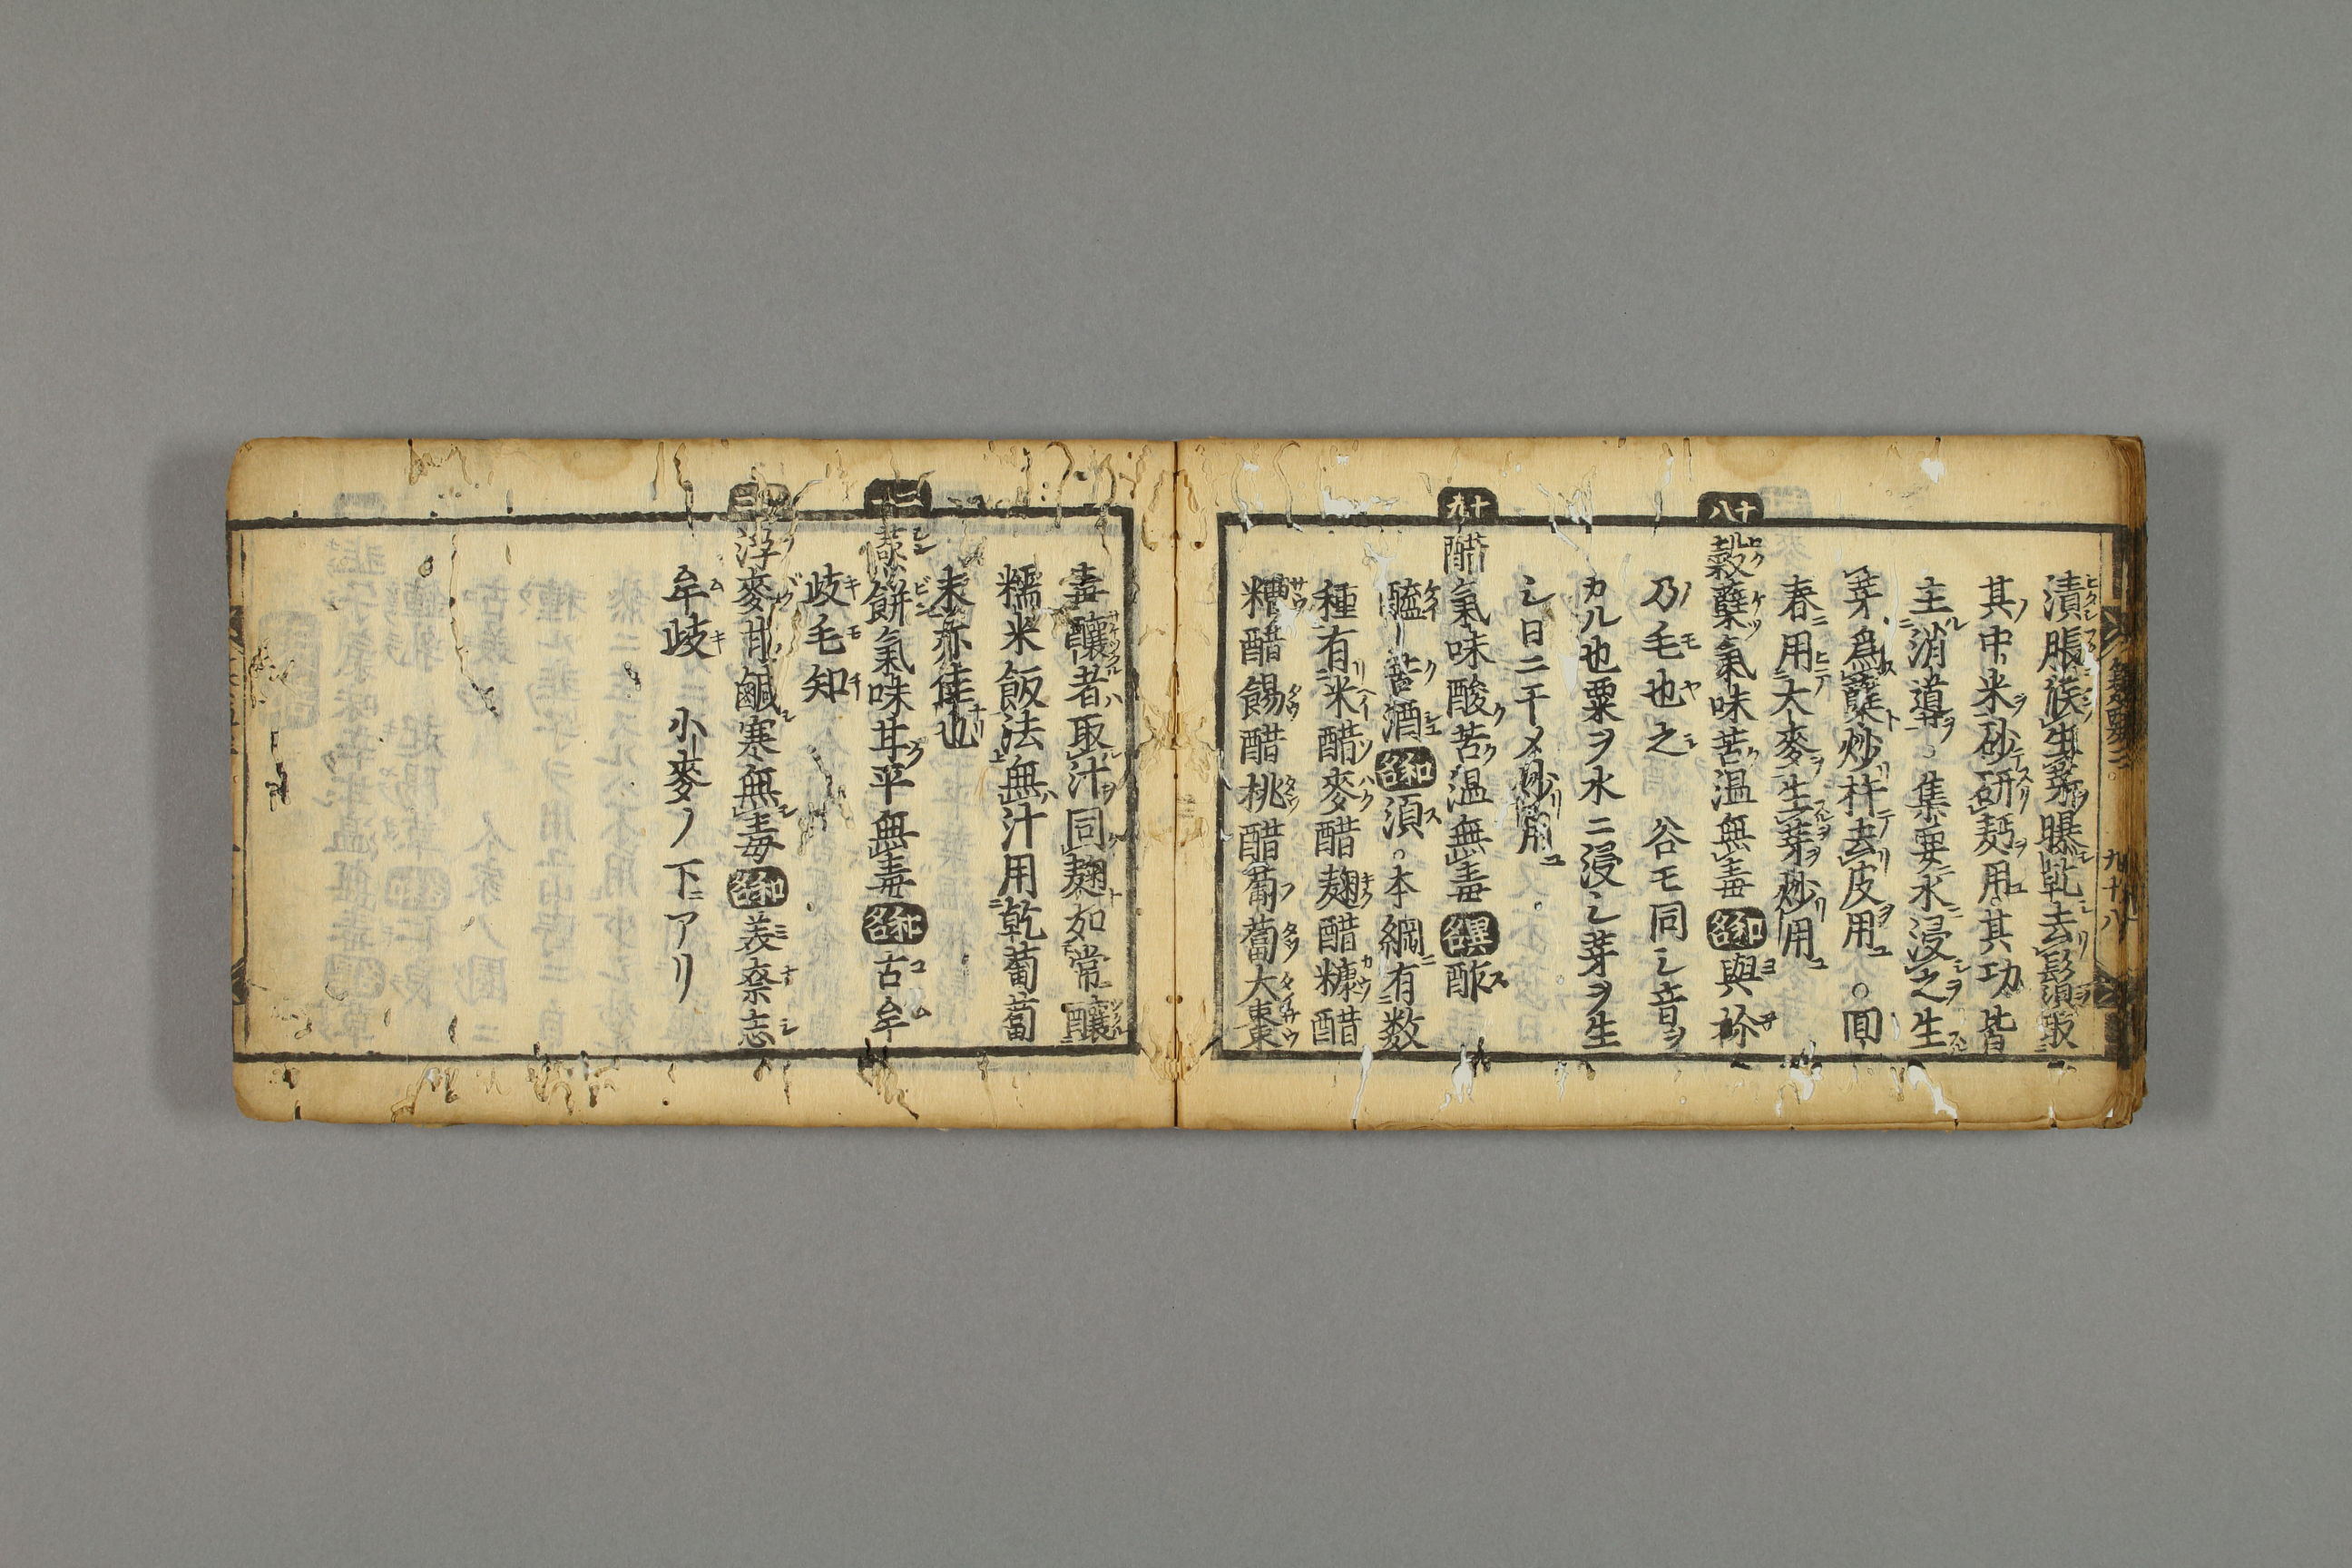 漬脹候生芽曝乾去鬚取
其中米砂研麪用其功皆
主消導。集要水浸之生
芽爲蘗炒杵去皮用。回
春用大麥生芽炒用
十八
穀蘗氣味苦温無毒和名與祢
乃毛也之 谷モ同シ音ヲ
カル也粟ヲ水ニ浸シ芽ヲ生
シ日ニ干メ炒用
十九
醋氣味酸苦温無毒異名酢
醯苦酒和名須。本綱有数
種有米醋麥醋麹醋糠醋
糟醋餳醋桃醋葡萄大棗
等醸者取汁同麹如常醸
糯米飯法無汁用乾葡萄
末亦佳也
二十一
餅氣味甘平無毒和名古牟
歧毛知
浮麥甘鹹寒無毒和名美奈志
牟歧 小麥ノ下ニアリ
九十八